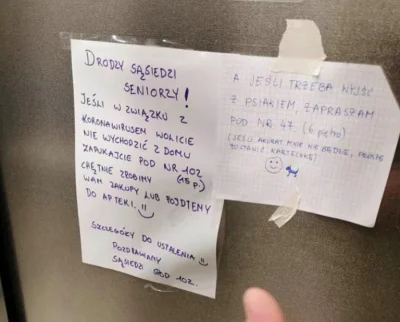 DRODZY SĄSIEDZI
SENIORZY!
JEŚLI W ZWIĄZKU Z
KORONAWIRUSEM WOLICIE
NIE WYCHODZIĆ Z DOMU
ZAPUKAJCIE POD NR 102
CHĘTNIE ZROBIMY (15 p.)
WAM ZAKUPY LUB PÓJDZIEMY
DO APTEKI.
SZCZEGÓŁY DO USTALENIA
POZDRAWIAMY
SĄSIEDZI SPOD 102.
A JEŚLI TRZEBA WYJŚĆ
Z PSIAKIEM, ZAPRASZAM
POD NR 47. (6 piętro)
(JEŚLI AKURAT MNIE NIE BĘDZIE, PROSZĘ
ZOSTAWIĆ KARTECZKĘ)